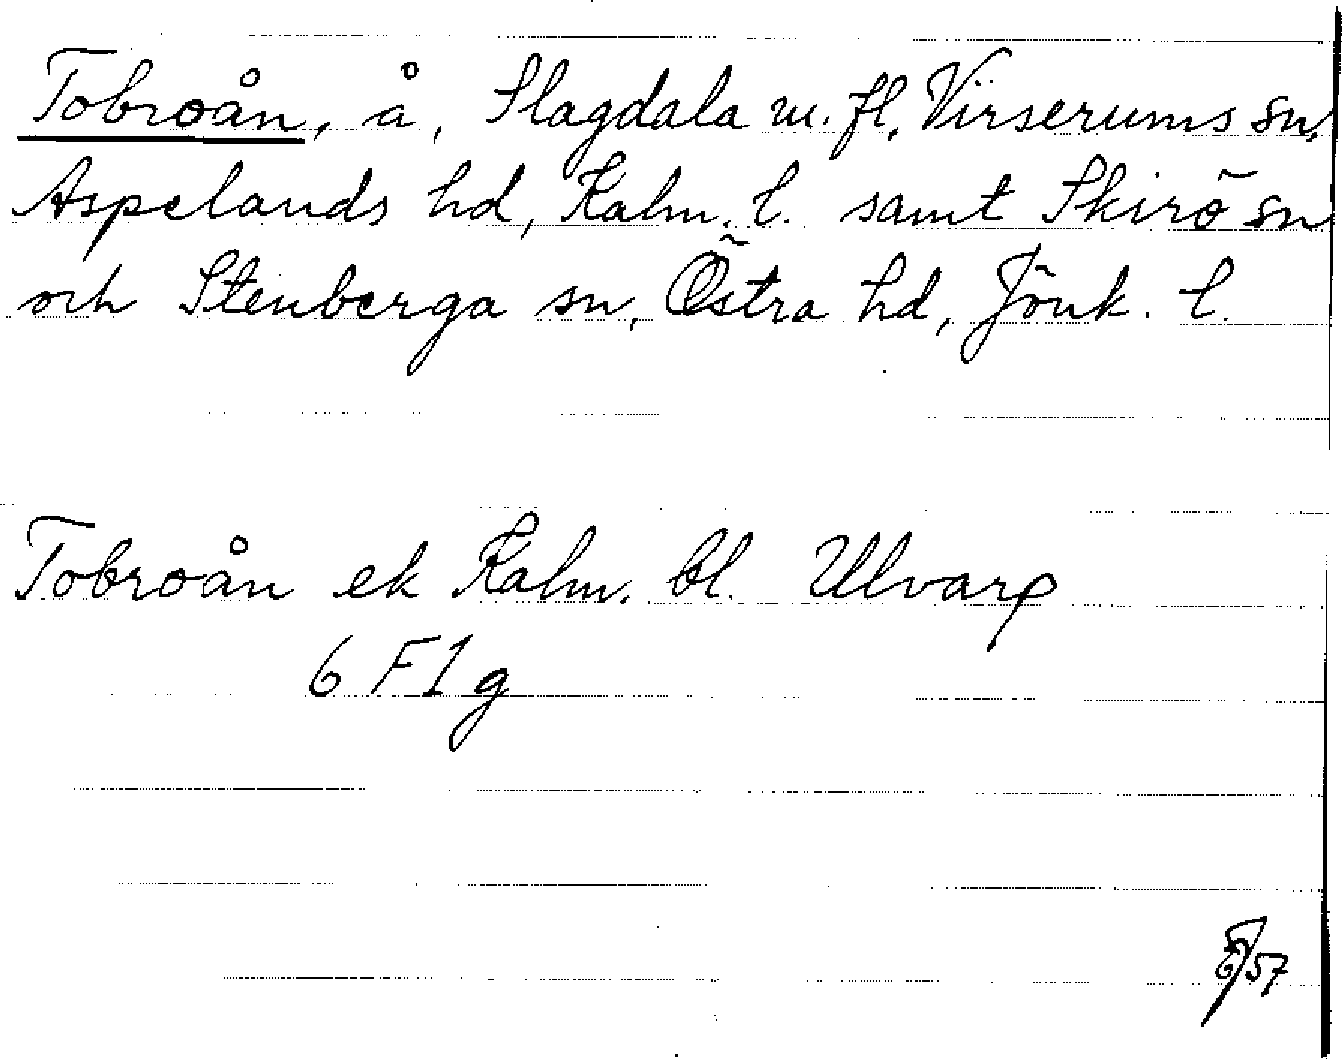 Tobroån, å, Slagdala m. fl. Virserums sn,
Aspelands hd, Kalm. l. samt Skirö sn
och Stenberga sn, Östra hd, Jönk. l.
Tobroån ek Kalm. bl. Ulvarp
6 F 1 g
57